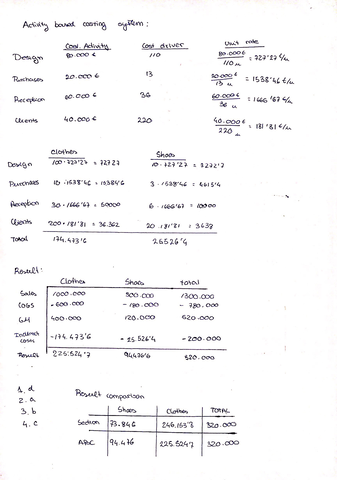 Activity based costing system:
Cost. Activity Cost driver Unit rate
Design 80.000 € 110 80.000 € / 110 u = 727'27 €/u
Purchases 20.000 € 13 20.000 € / 13 u = 1538'46 €/u
Reception 60.000 € 36 60.000 € / 36 u = 1666'67 €/u
Clients 40.000 € 220 40.000 € / 220 u = 181'81 €/u
Clothes Shoes
Design 100·727'27 = 72727 10·727'27 = 7272'7
Purchases 10·1538'46 = 15384'6 3·1538'46 = 4615'4
Reception 30·1666'67 = 50000 6·1666'67 = 10000
Clients 200·181'81 = 36.362 20·181'81 = 3638
Total 174.473'6 25526'4
Result:
Clothes Shoes Total
Sales 1000.000 300.000 1300.000
COGS -600.000 -180.000 -780.000
GM 400.000 120.000 520.000
Indirect costs -174.473'6 -25.526'4 -200.000
Result 225.526'7 94474'6 320.000
1. d
2. a
3. b
4. c
Result comparison
Shoes Clothes TOTAL
Section 73.846 246.153'8 320.000
ABC 94.476 225.524'7 320.000